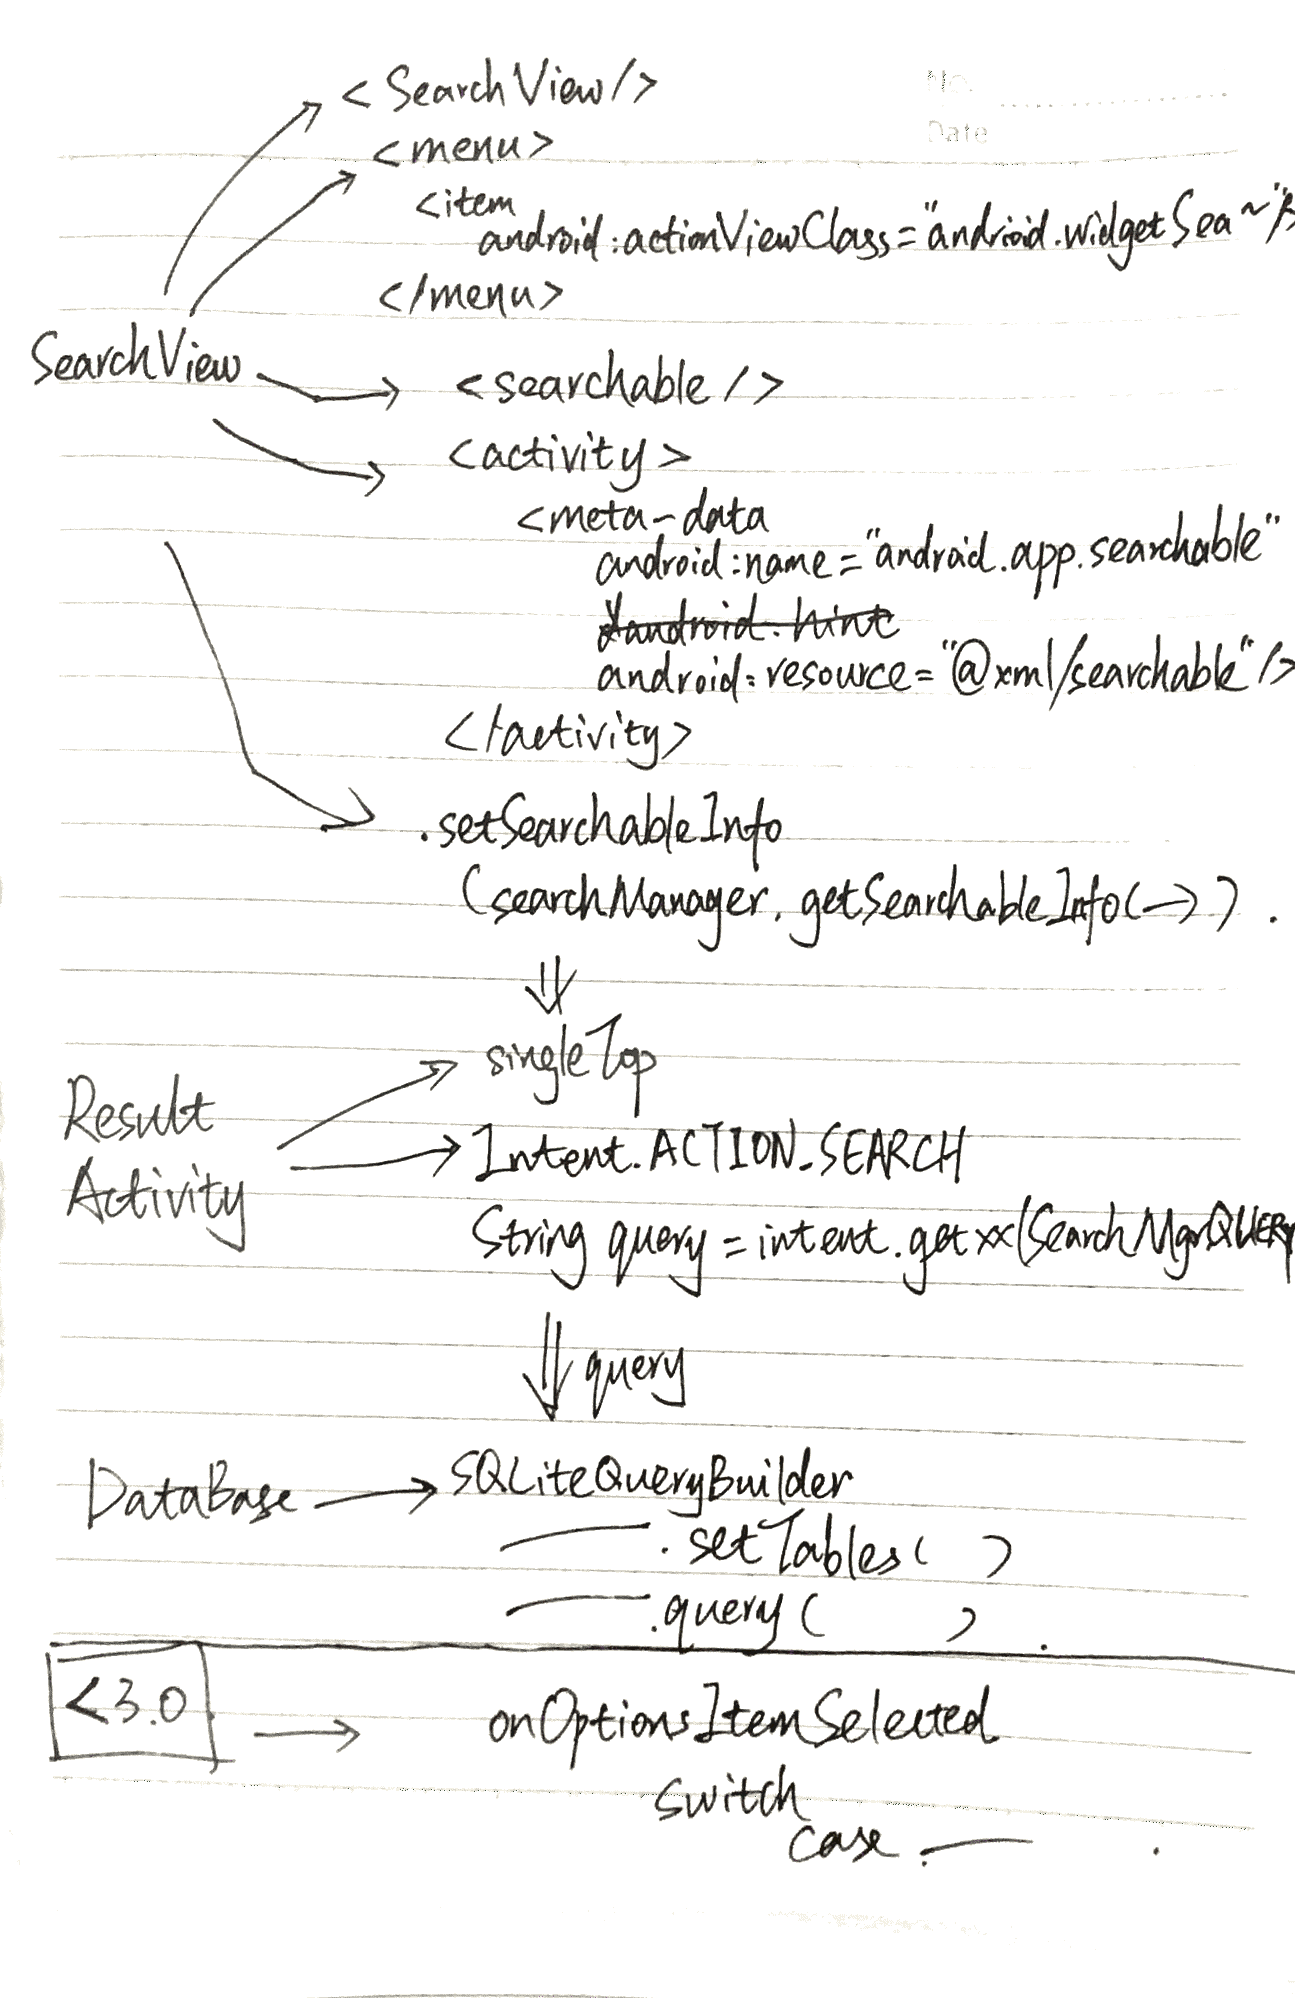 No.
Date
<SearchView/>
<menu>
<item
android:actionViewClass="android.widgetSea~"/>
</menu>
SearchView
<searchable/>
<activity>
<meta-data
android:name="android.app.searchable"
android.hint
android:resource="@xml/searchable"/>
</activity>
.setSearchableInfo
(searchManager.getSearchableInfo(→)).
⇓
singleTop
Result
Activity
Intent.ACTION_SEARCH
String query=intent.getxx(SearchMgrQUERY
⇓ query
DataBase → SQLiteQueryBuilder
— .setTables( )
— .query( ).
<3.0 → onOptionsItemSelected
switch
case .— .